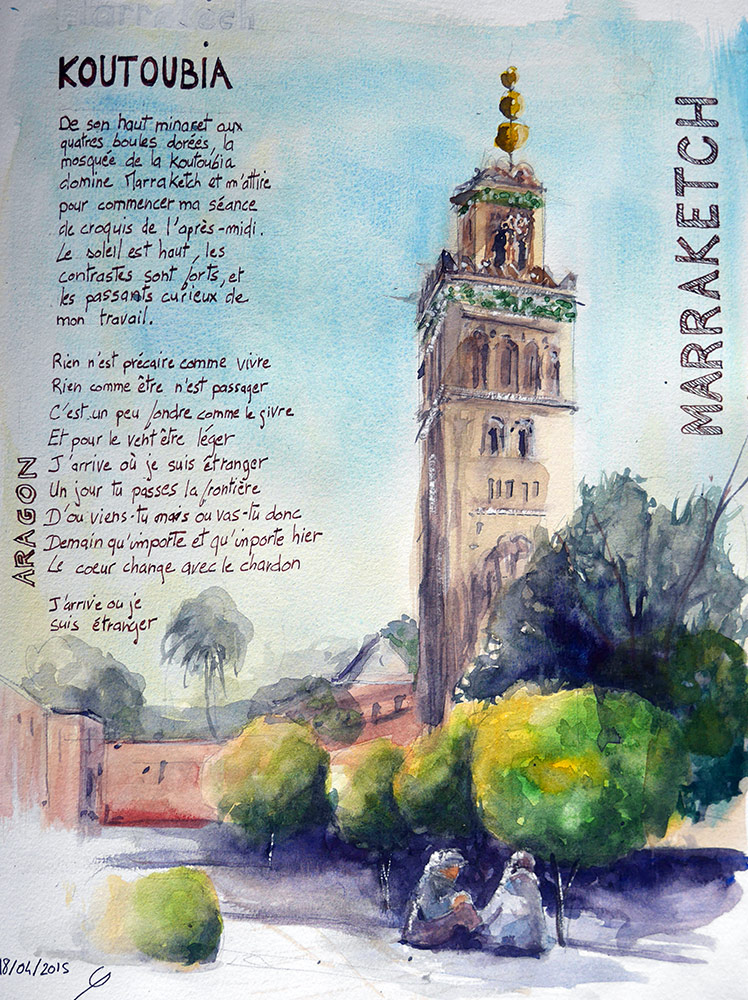 Marrakech
KOUTOUBIA
De son haut minaret aux
quatres boules dorées, la
mosquée de la Koutoubia
domine Marraketch et m'attire
pour commencer ma séance
de croquis de l'après-midi.
Le soleil est haut, les
contrastes sont forts, et
les passants curieux de
mon travail.
Rien n'est précaire comme vivre
Rien comme être n'est passager
C'est un peu fondre comme le givre
Et pour le vent être léger
J'arrive où je suis étranger
Un jour tu passes la frontière
D'ou viens-tu mais ou vas-tu donc
Demain qu'importe et qu'importe hier
Le coeur change avec le chardon
J'arrive ou je
suis étranger
ARAGON
MARRAKETCH
18/04/2015